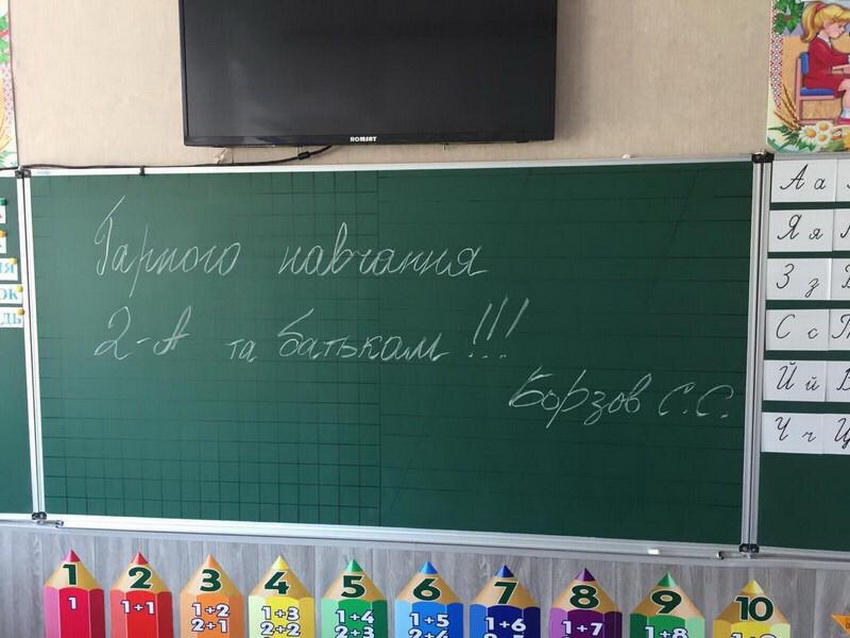 ROMSAT
Гарного навчання
2-А та батькам !!!
Борзов С.С.
А а
Я я
З з
С с
Й й
Ч ч
ОК
ДЬ
1 2 3 4 5 6 7 8 9 10
1 1+1 1+2 1+3 1+4 1+5 1+6 1+7 1+8
2+1 2+2 2+3 2+4